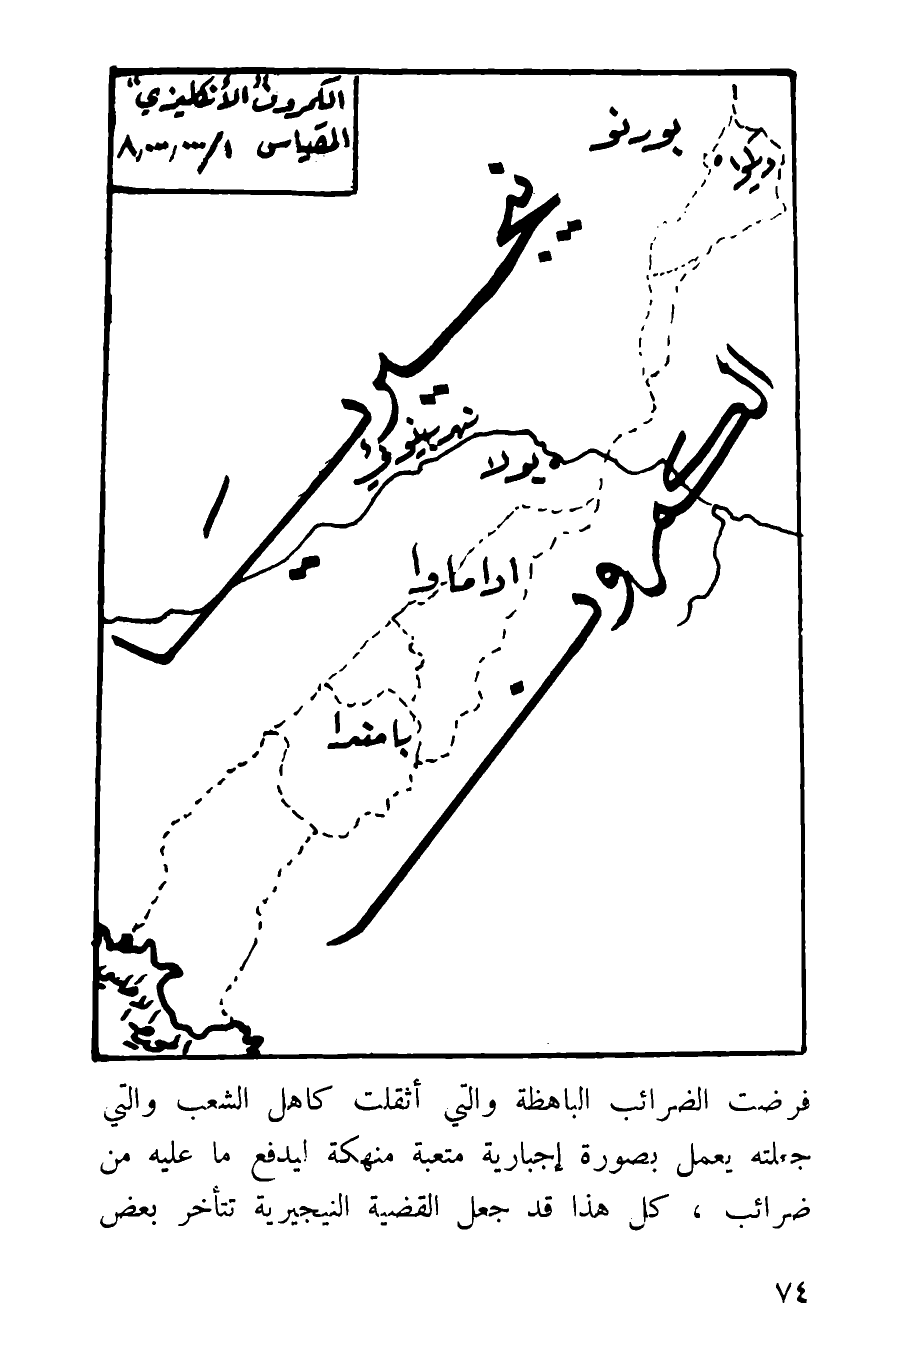 الكمرون "الأنكليزي"
المقياس ٨,٠٠٠,٠٠٠/١
بورنو
ديكوا
نيجيريا
نهر بينوي
يولا
الكمرون
اداماوا
بامندا
المحيط
فرضت الضرائب الباهظة والتي أثقلت كاهل الشعب والتي
جعلته يعمل بصورة إجبارية متعبة منهكة ليدفع ما عليه من
ضرائب ، كل هذا قد جعل القضية النيجيرية تتأخر بعض
٧٤